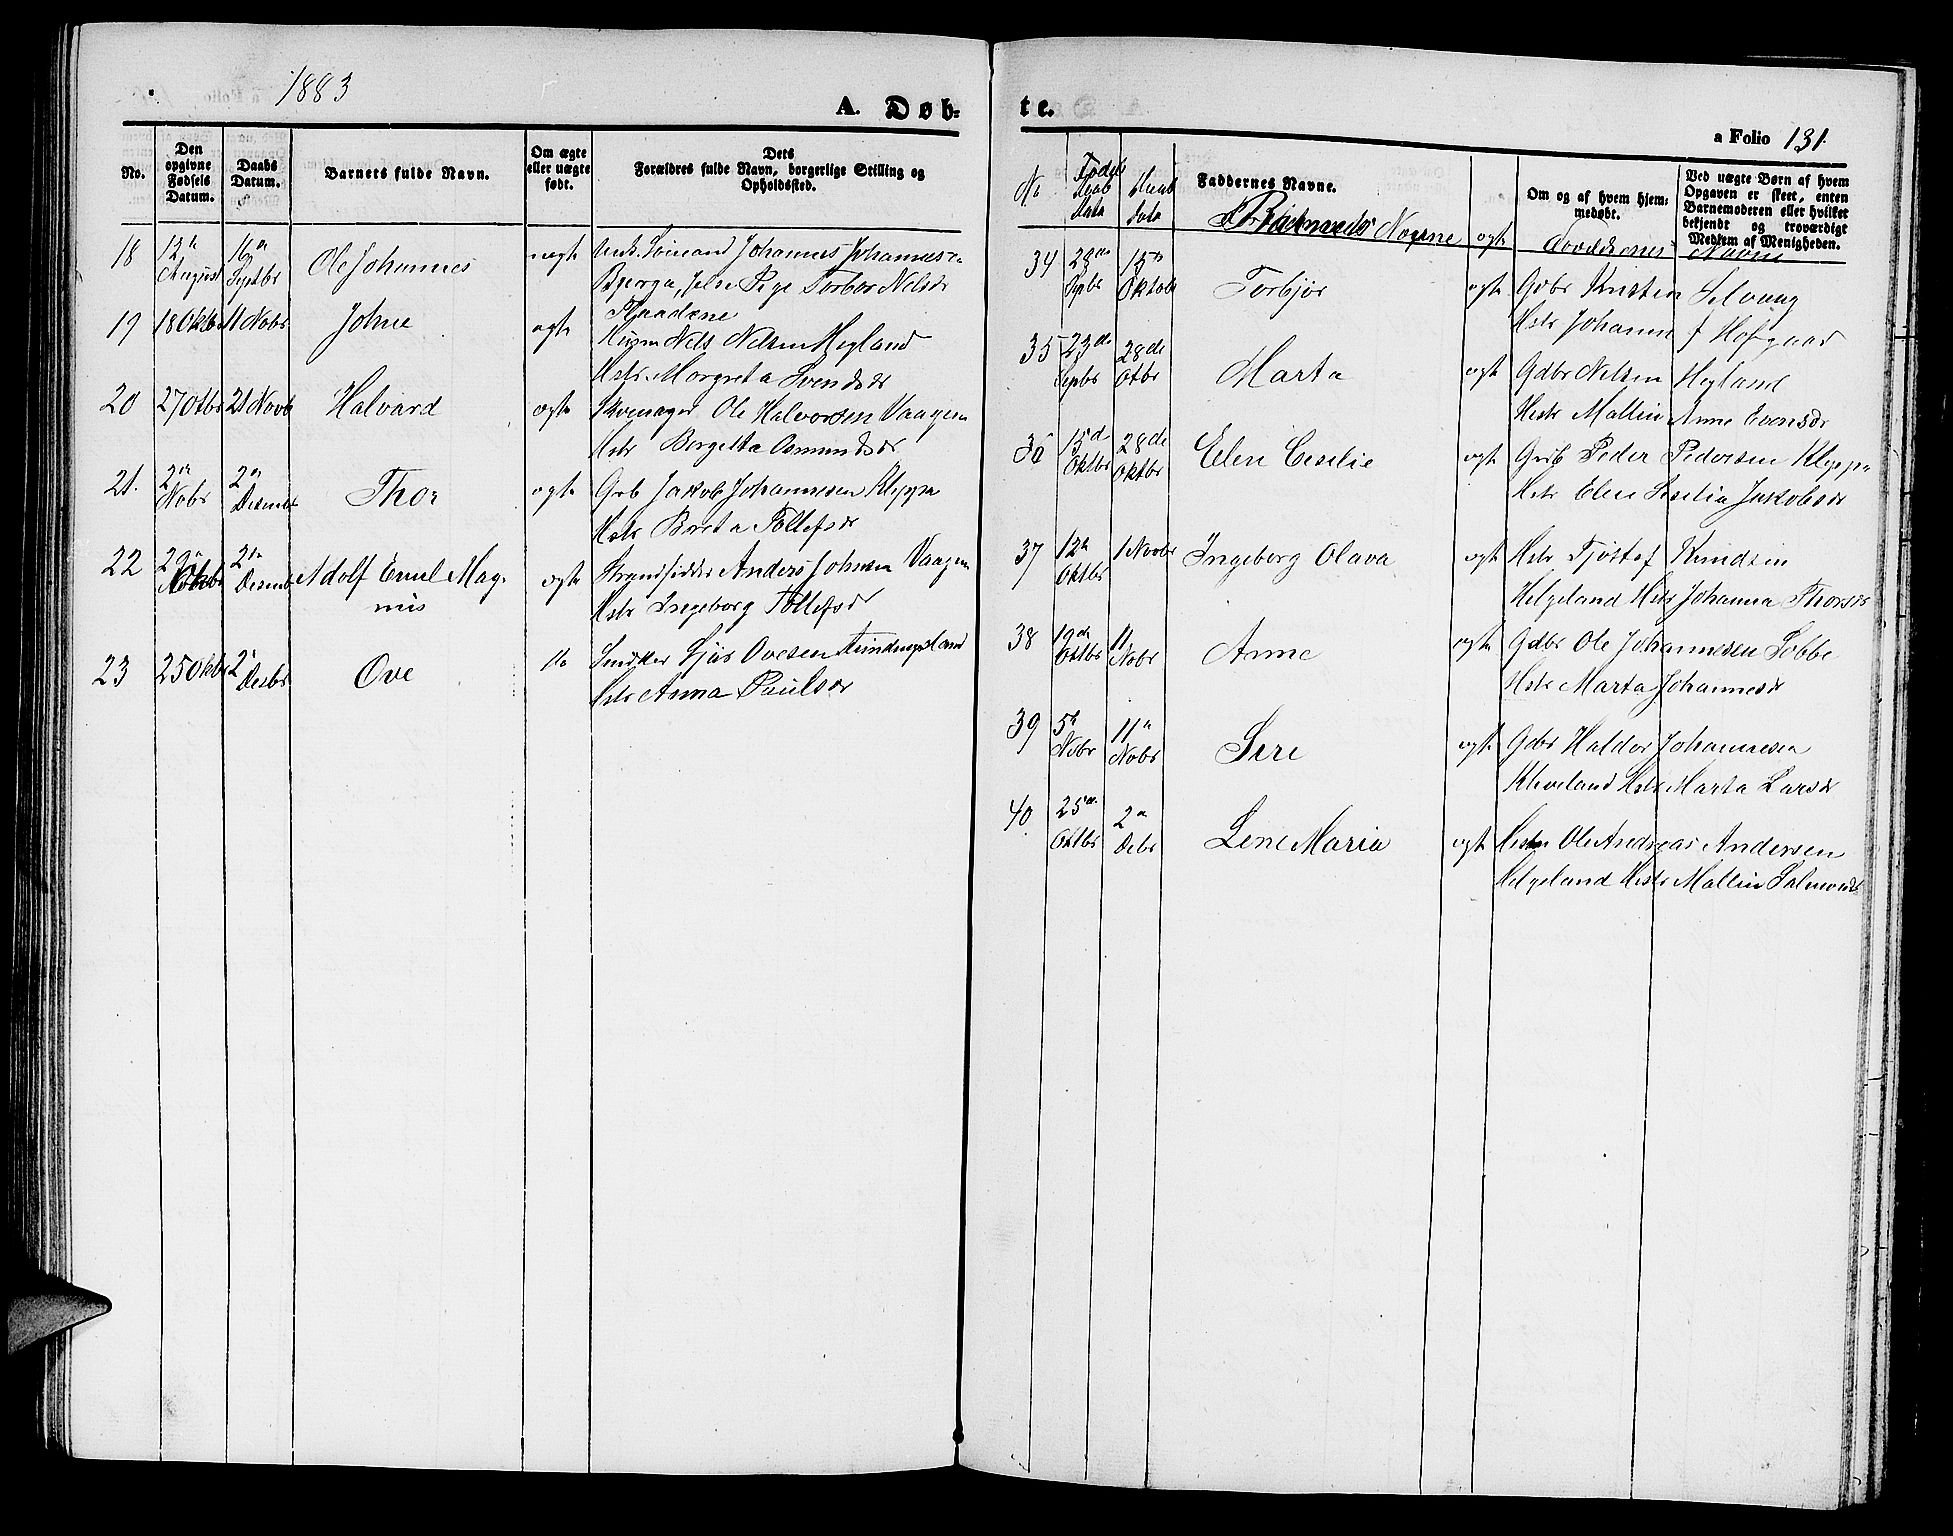 1883
A. Døb-
No.
Den opgivne Fødsels Datum.
Daabs Datum.
Barnets fulde Navn.
Om ægte eller uægte født.
Dets Forældres fulde Navn, borgerlige Stilling og Opholdssted.
18 12te August 16de Septbr Ole Johannes uægte Unk. Sømand Johannes Johannesen
Bjerga, Jelse Pige Torbor Nelsdr
Knadene
19 18 Oktbr 11 Nobr Johne ægte Husm Nels Nelsen Hegland
Hstr Margreta Svendsdr
20 27 Otbr 21 Novb Halvard ægte Skomager Ole Halvorsen Vaagen
Hstr Bergetta Osmundsdr
21. 2den Nobr 2den Desembr Thor ægte Grb Jakob Johannesen Kleppe
Hstr Berta Tollefsdr
22 29de Oktbr 2den Desembr Adolf Emil Mag-
nus ægte Strandsidder Anders Johnsen Vaagen
Hstr Ingeborg Tollefsdr
23 25 Oktbr 2den Desbr Ove Snekker Ovesen
Hstr Anna Paulsdr
te.
a Folio 131.
No
Fødsels Daab Data
Daab Data
Faddernes Navne.
Barnets Navne
ægte
Om og af hvem hjemmedøbt.
Forældrenes Navne
Ved uægte Børn af hvem Opgaven er skeet, enten Barnemoderen eller hvilket bekjendt og troværdigt Medlem af Menigheden.
34 28de Sepbr 15de Oktobr Torbjør ægte Gdbr Kristen Selvaag
Hstr Johanne f Hofgaard
35 23de Sepbr 28de Otbr Marta ægte Gdbr Nelsen Hegland
Hstr Mallin Anne Evensdr
36 15de Oktbr 28de Oktbr Elen Cesilie ægte Grb Peder Pedersen Kleppe
Hstr Elen Sesilia Jakobsdr
37 12te Oktbr 1 Novbr Ingeborg Olava ægte Hstr Tjøstof Knudsen
Helgeland Hstr Johanna Thorsdr
38 19de Oktbr 11 Nobr Anne ægte Gdbr Ole Johannesen Løbbe
Hstr Marta Johannesdr
39 5te Nobr 11te Nobr Sere ægte Gdbr Haldor Johannesen
Kleveland Hstr Marta Larsdr
40 25de Oktbr 2den Debr Lene Maria ægte Ole Andreas Andersen
Helgeland Hstr Mallin